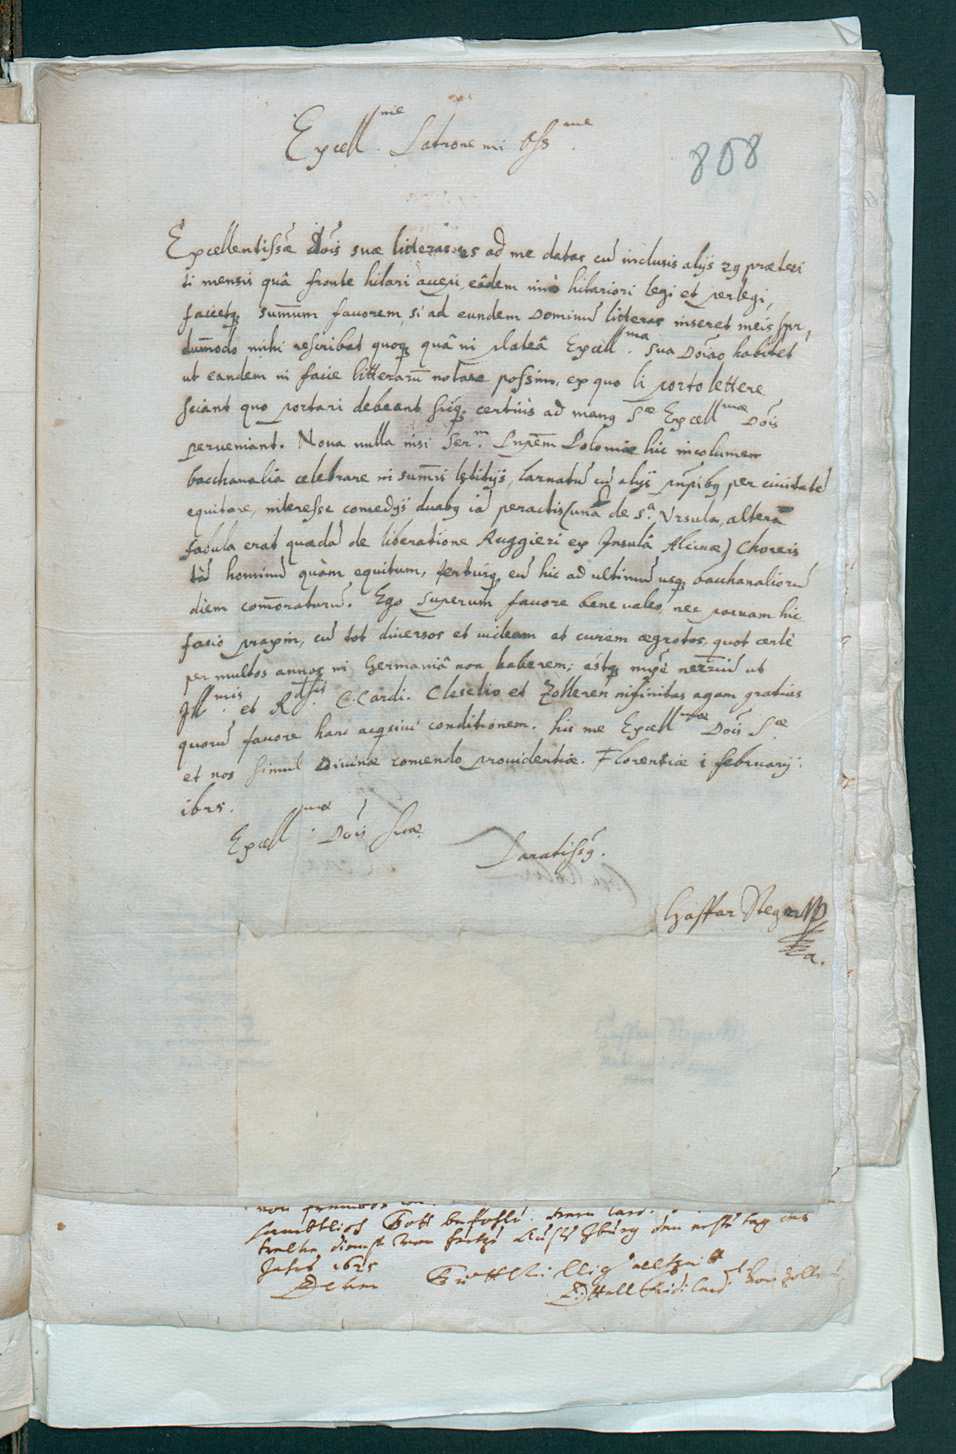 Excell.me Patrone mi Obs.me
808
Excellentissæ Dōis suæ litteras 25 ad me datas cū inclusis alijs 29 præteri
ti mensis quâ fronte hilari accepi, eâdem imò hilariori legi et perlegi,
facietq summum favorem, si ad eundem Dominū litteras inseret meis,
dummodo mihi rescribat quoq, quâ in plateâ Excell.ma sua Dōiao habitet
ut eandem in facie litterarū notare possim, ex quo li porto lettere
sciant quo portari debeant, sicq certius ad manq Sæ Excell.mæ Dōis
perveniant. Nova nulla nisi Ser.m Prpēm Poloniæ hic incolumem
bacchanalia celebrare in summis lætitijs, larvatū cū alijs prīpibq per civitatē
equitare, interesse comedijs duabq iā peractis (unâ de S.a Ursula, alterâ
fabula erat quædā de liberatione Ruggieri ex Insulâ Alcinæ) Choreis
tā hominū quàm equitum, ferturq eū hic ad ultimū usq bacchanaliorū
diem commoraturū. Ego superum favore bene valeo, nec parvam hic
facio praxin, cū tot diversos et videam et curem ægrotos, quot certè
per multos annos in Germaniâ non haberem; éstq ut
Ill.mis et R.dis C. Card. Cleselio et Zolleren infinitas agam gratias
quorū favore hanc acqsivi conditionem. hic me Excell.mæ Dōis Sæ
et nos simul Divinæ comendo providentiæ. Florentiæ i february.
i625.
Excell.mæ Dōis suæ
Paratissq.
Gaspar Neger
sambtlich Gott befohlen.
Jahrs 1625